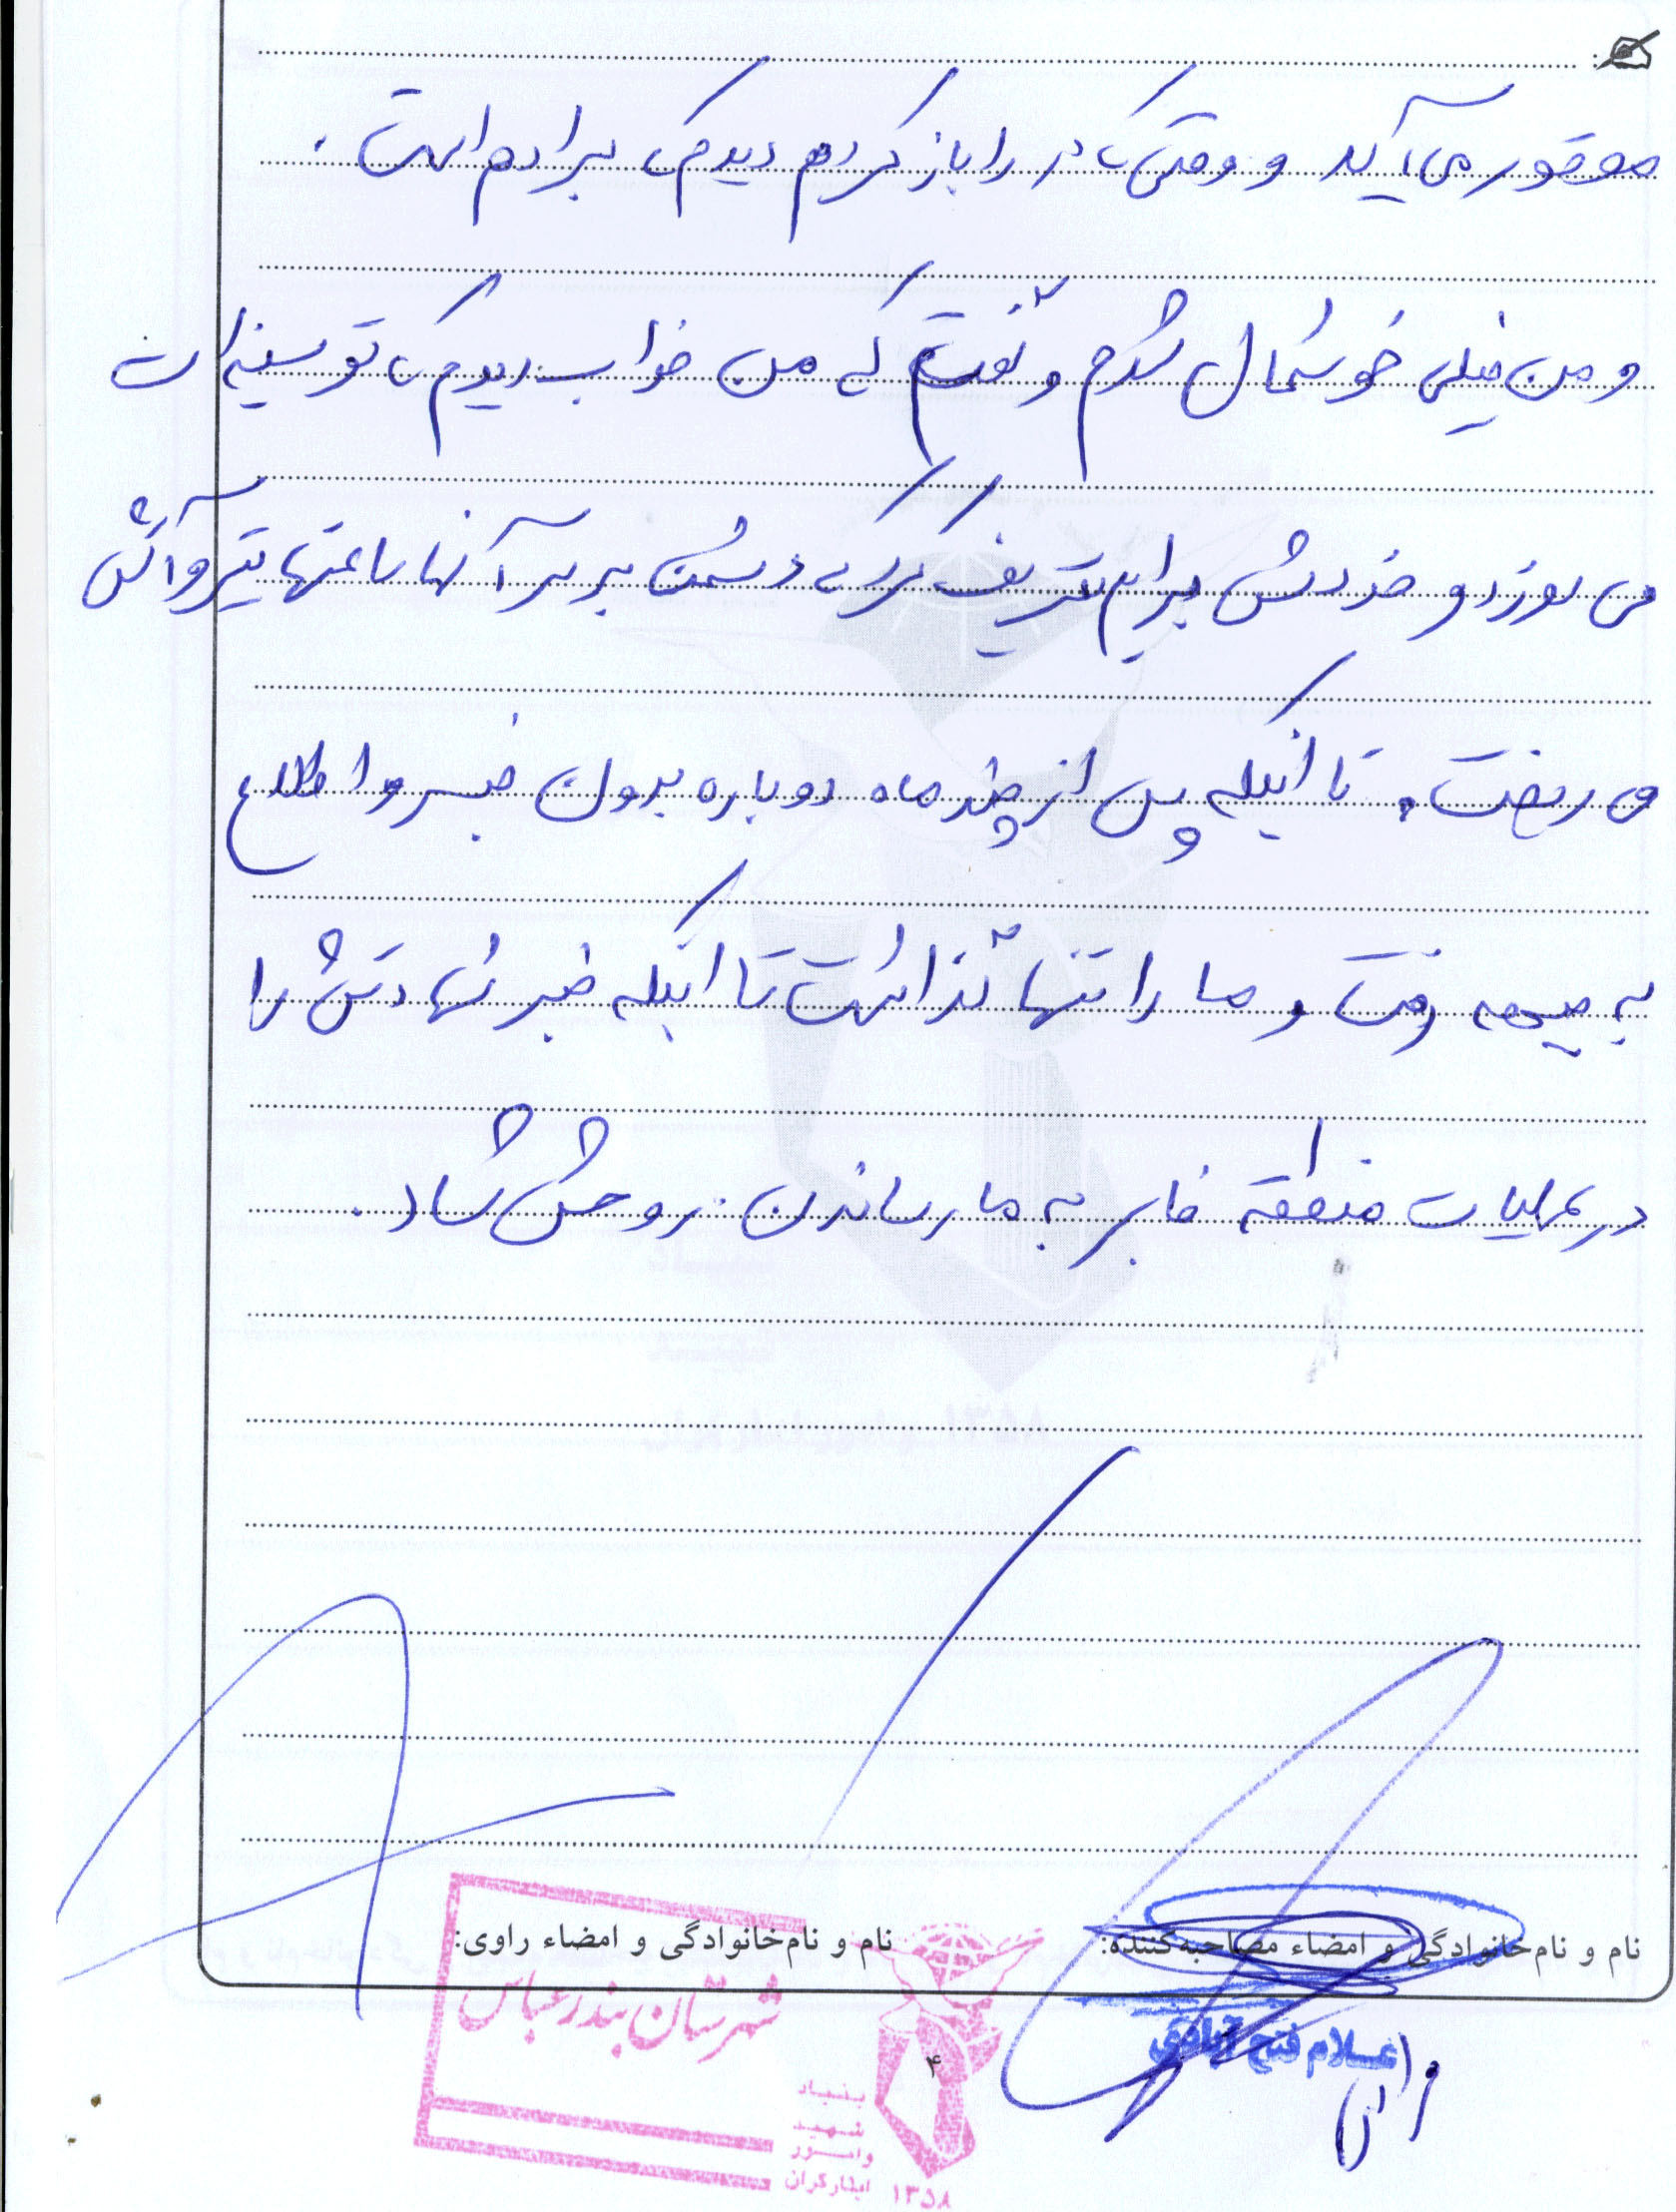 می آید و وقتی که در را باز کردم دیدم که برادرم است.
و من خیلی خوشحال شدم و گفتم که من خواب دیدم که تو سینه ات
می سوزد و خودش برایم تعریف کرد که دشمن بر سر آنها ساعتها تیر و آتش
می ریخت. تا اینکه پس از چند ماه دوباره بدون خبر و اطلاع
به جبهه رفت و ما را تنها گذاشت تا اینکه خبر شهادتش را
در عملیات منطقه به ما رساندن. روحش شاد.
نام و نام‌خانوادگی و امضاء مصاحبه‌کننده:
نام و نام‌خانوادگی و امضاء راوی:
شهرستان بندرعباس
۴
بنیاد
شهید
وامور
ایثارگران
۱۳۵۸